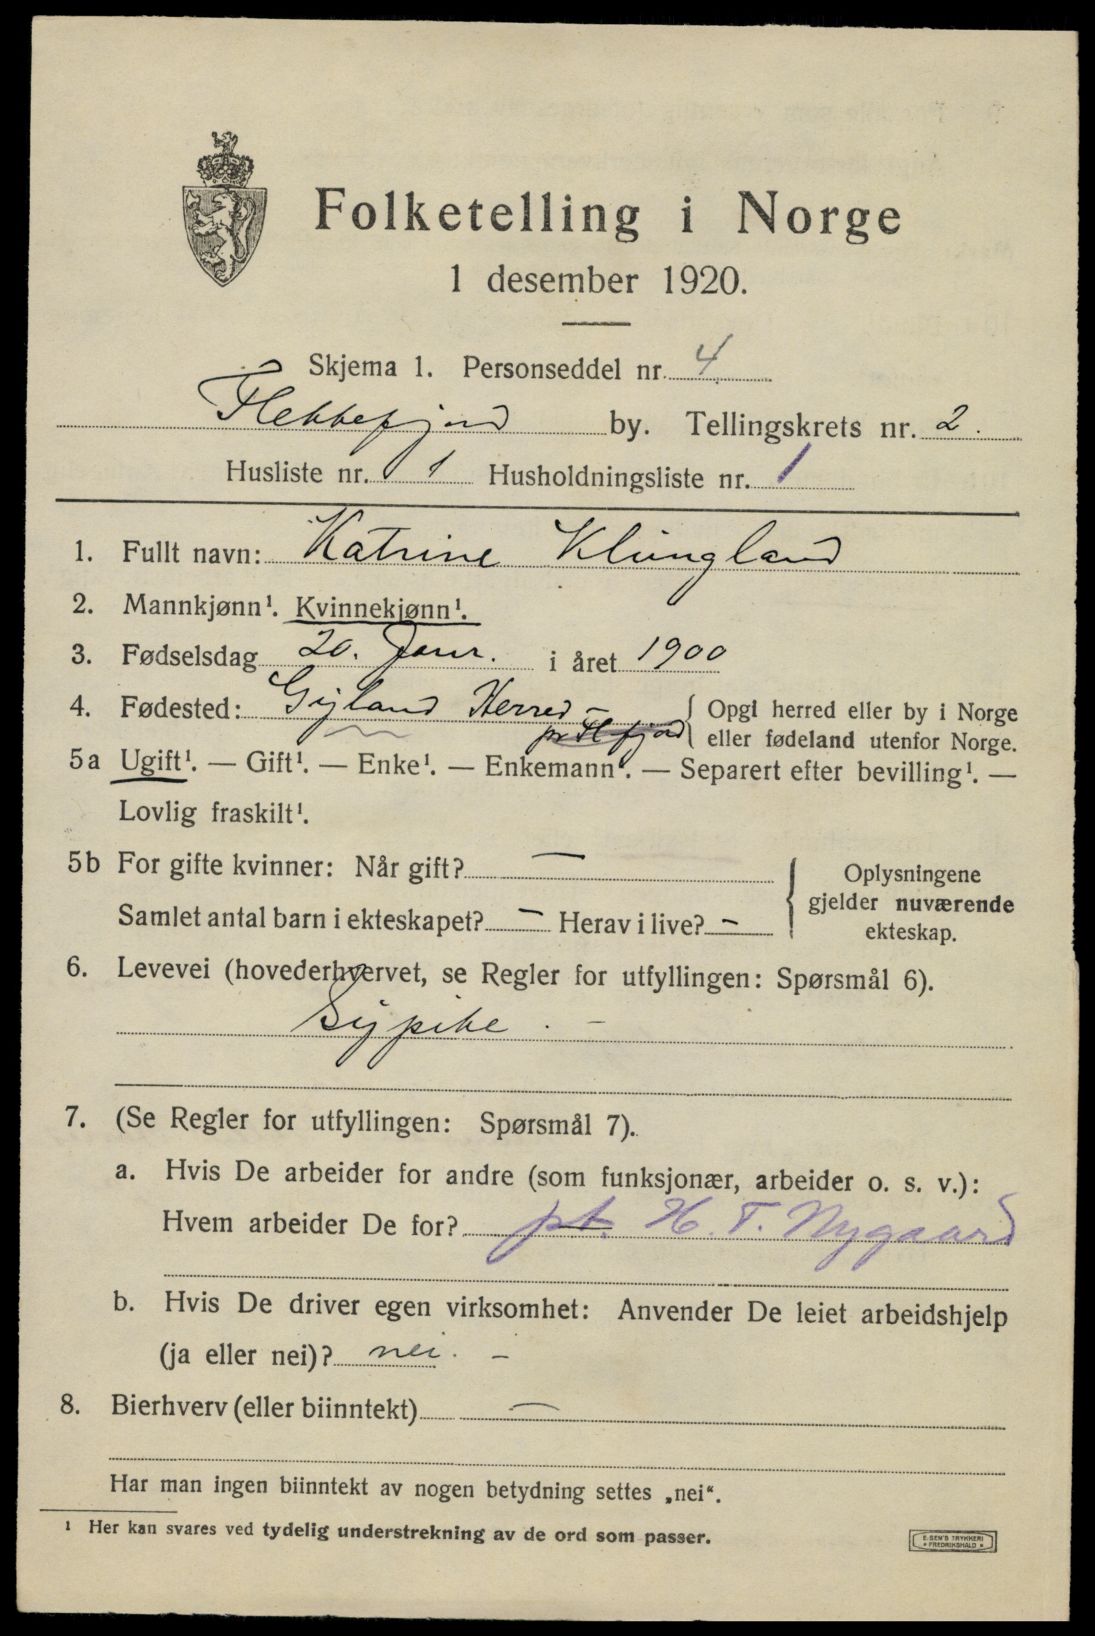 Folketelling i Norge
1 desember 1920.
Skjema 1. Personseddel nr. 4
Flekkefjord by. Tellingskrets nr. 2.
Husliste nr. 1 Husholdningsliste nr. 1
1. Fullt navn: Katrine Klungland
2. Mannkjønn¹. Kvinnekjønn¹.
3. Fødselsdag 20. Janr. i året 1900
4. Fødested: Gyland Herred – { Opgi herred eller by i Norge
pr Fl.fjord eller fødeland utenfor Norge.
5a Ugift¹. — Gift¹. — Enke¹. — Enkemann¹. — Separert efter bevilling¹. —
Lovlig fraskilt¹.
5b For gifte kvinner: Når gift? —
Samlet antal barn i ekteskapet? – Herav i live? –
{ Oplysningene
gjelder nuværende
ekteskap.
6. Levevei (hovederhvervet, se Regler for utfyllingen: Spørsmål 6).
Sypike. –
7. (Se Regler for utfyllingen: Spørsmål 7).
a. Hvis De arbeider for andre (som funksjonær, arbeider o. s. v.):
Hvem arbeider De for? pt. H. T. Nygaard
b. Hvis De driver egen virksomhet: Anvender De leiet arbeidshjelp
(ja eller nei)? nei. –
8. Bierhverv (eller biinntekt) —
Har man ingen biinntekt av nogen betydning settes „nei“.
¹ Her kan svares ved tydelig understrekning av de ord som passer.
E. SEM'S TRYKKERI
• FREDRIKSHALD •